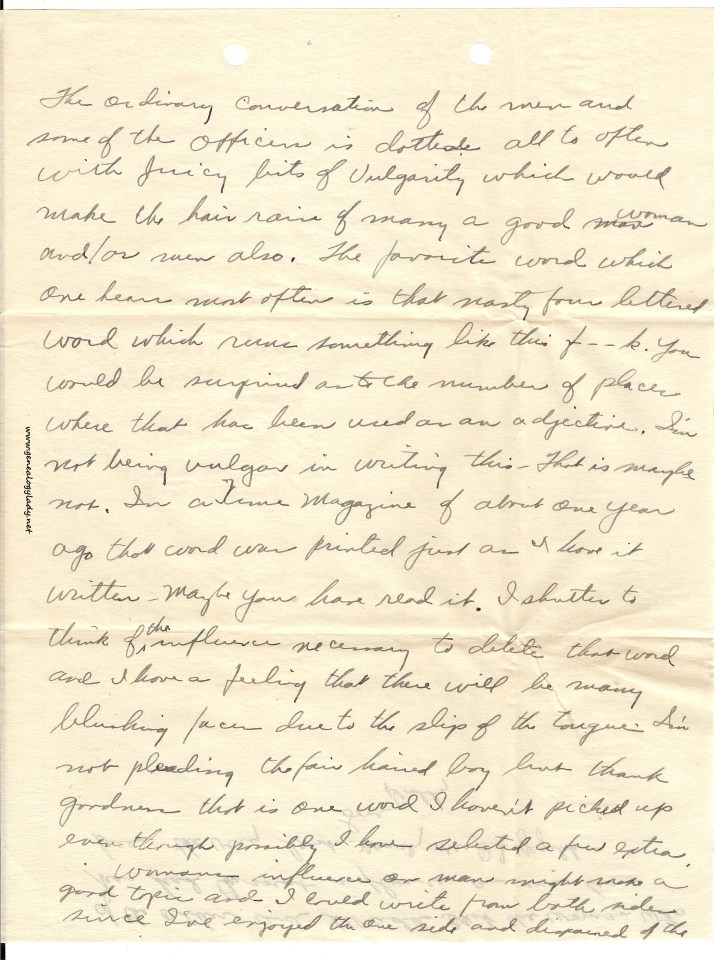 The ordinary conversation of the men and
some of the officers is dotted all to often
with juicy bits of Vulgarity which would
make the hair raise of many a good woman
and/or men also. The favorite word which
one hears most often is that nasty four lettered
word which runs something like this f--k. You
would be surprised as to the number of places
where that has been used as an adjective. I'm
not being vulgar in writing this - That is maybe
not. In a Time Magazine of about one year
ago that word was printed just as I have it
written - Maybe you have read it. I shutter to
think of the influence necessary to delete that word
and I have a feeling that there will be many
blushing faces due to the slip of the tongue. I'm
not pleading the fair haired boy but thank
goodness that is one word I haven't picked up
even though possibly I have selected a few extra.
Womans influence on man might make a
good topic and I could write from both sides
since I've enjoyed the one side and despaired of the
www.genealogylady.net